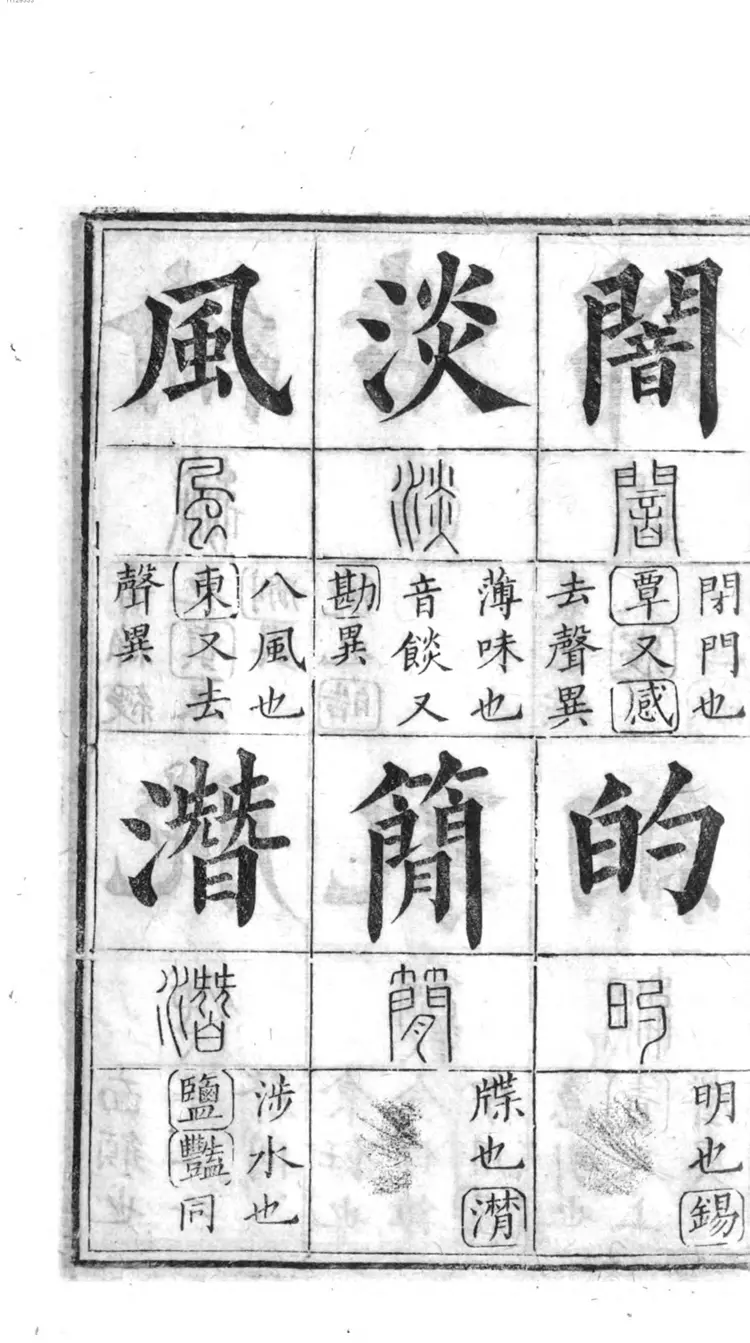 闇
闇
閉門也
覃又感
去聲異
的
旳
明也錫
淡
淡
薄味也
音餤又
勘異
簡
簡
牒也潸
風
風
八風也
東又去
聲異
潛
潛
涉水也
鹽豔同